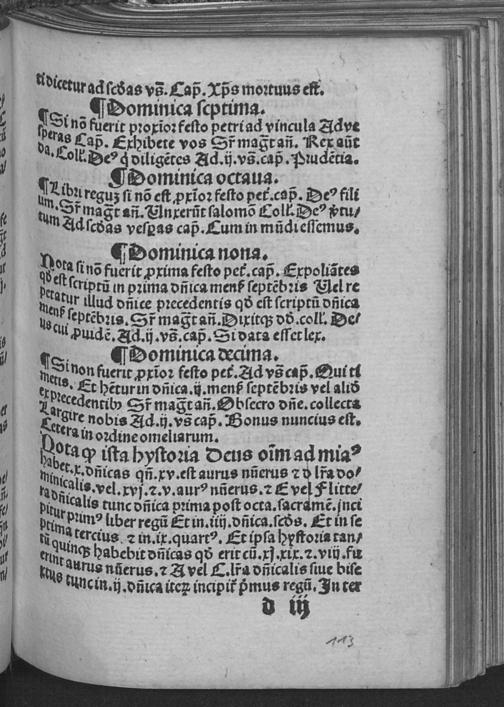 ti dicetur ad scd̃as vs̃. Cap̃. Xp̃s mortuus est̃.
¶Dominica septima.
¶Si nõ fuerit proxior festo petri ad vincula Adve
speras Cap̃. Exhibete vos Sr̃ mag̃t añ. Rex aũt
da. Coll̃. Deꝰ q̃ diligẽtes Ad.ij.vs̃.cap̃. Prudẽtia.
¶Dominica octaua.
¶Libri reguꝫ si nõ est ꝓxĩor festo pet̃.cap̃. Deꝰ fili
um. Sr̃ mag̃t añ. Unxerũt salomõ Coll̃. Deꝰ v̾tu/
tum Ad scd̃as vesꝑas cap̃. Cum in mũdi essemus.
¶Dominica nona.
Nota si nõ fuerit ꝓxima festo pet̃.cap̃. Expoliãtes
qd̃ est scriptũ in prima dñica mens̃ septẽbris Uel re
petatur illud dñice precedentis qd̃ est scriptũ dñica
mens̃ septẽbris. Sr̃ mag̃t añ. Dixitqꝫ dõ.coll̃. De/
us cui ꝓuidẽ. Ad.ij.vs̃.cap̃. Si data esset lex.
¶Dominica decima.
¶Si non fuerit ꝓxĩor festo pet̃. Ad vs̃ cap̃. Qui ti
metis. Et hẽtur in dñica.ij.mens̃ septẽbris vel aliõ
ex precedentibꝰ Sr̃ mag̃t añ. Obsecro dñe. collecta
Largire nobis Ad.ij.vs̃ cap̃. Bonus nuncius est.
Cetera in ordine omeliarum.
Nota ꝙ ista hystoria Deus oĩm ad miaꝰ
habet.x.dñicas qñ.xv.est aurus nũerus ⁊ d lr̃a do/
minicalis.vel.xvj.⁊.v.aurꝰ nũerus.⁊ E vel F litte/
ra dñicalis tunc dñica prima post octa.sacramẽ.inci
pitur primꝰ liber regũ Et in.iiij.dñica.scd̃s. Et in se
ptima tercius ⁊ in.ix.quartꝰ. Et ipsa hystoria tan/
tũ quinqꝫ habebit dñicas qd̃ erit cũ.xj.xix.⁊.viij.fu
erint aurus nũerus.⁊ A vel C.lr̃a dñicalis siue bise
xtus tunc in.ij.dñica iteꝝ incipir̃ p̃mus regũ. In ter
d iij
113